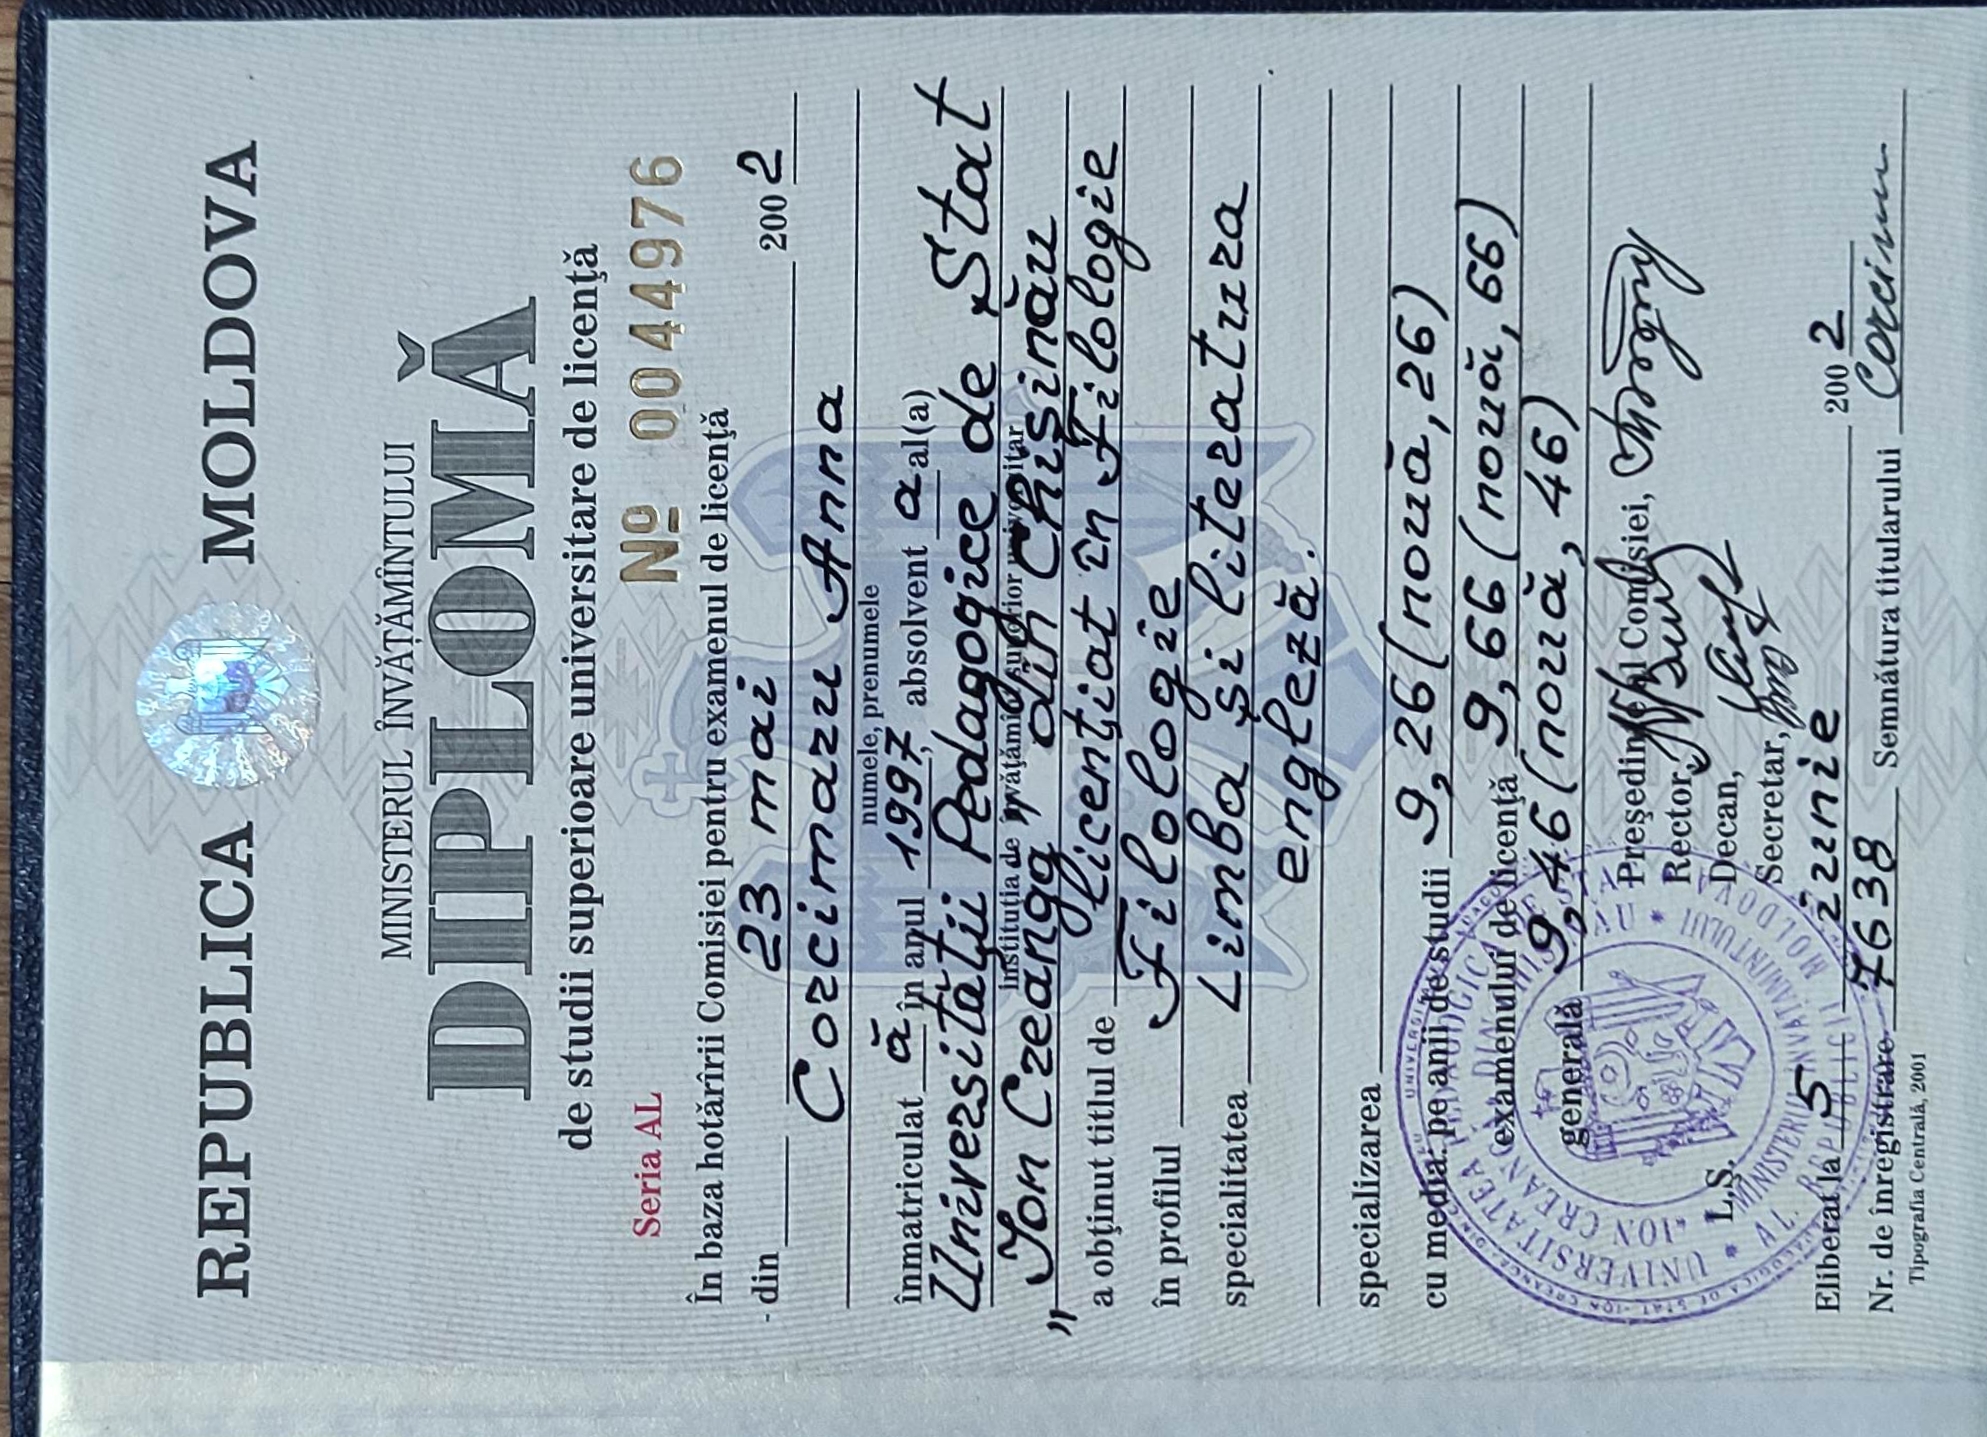 REPUBLICA MOLDOVA
MINISTERUL ÎNVĂŢĂMÎNTULUI
DIPLOMĂ
de studii superioare universitare de licenţă
Seria AL № 004976
În baza hotărîrii Comisiei pentru examenul de licenţă
din 23 mai 2002
Corcimaru Anna
numele, prenumele
înmatriculat ă în anul 1997, absolvent a al(a)
Universităţii Pedagogice de Stat
instituţia de învăţămînt superior universitar
"Ion Creangă" din Chişinău
a obţinut titlul de licenţiat în Filologie
în profilul Filologie
specialitatea Limba şi literatura
engleză.
specializarea
cu media: pe anii de studii 9,26 (nouă, 26)
examenului de licenţă 9,66 (nouă, 66)
generală 9,46 (nouă, 46)
Preşedintele Comisiei,
Rector,
Decan,
L.S. Secretar,
Eliberat la 5 iunie 2002
Nr. de înregistrare 7638 Semnătura titularului Corcimaru
Tipografia Centrală, 2001
UNIVERSITATEA PEDAGOGICĂ DE STAT
"ION CREANGĂ" DIN CHIŞINĂU
MINISTERUL ÎNVĂŢĂMÎNTULUI
AL REPUBLICII MOLDOVA